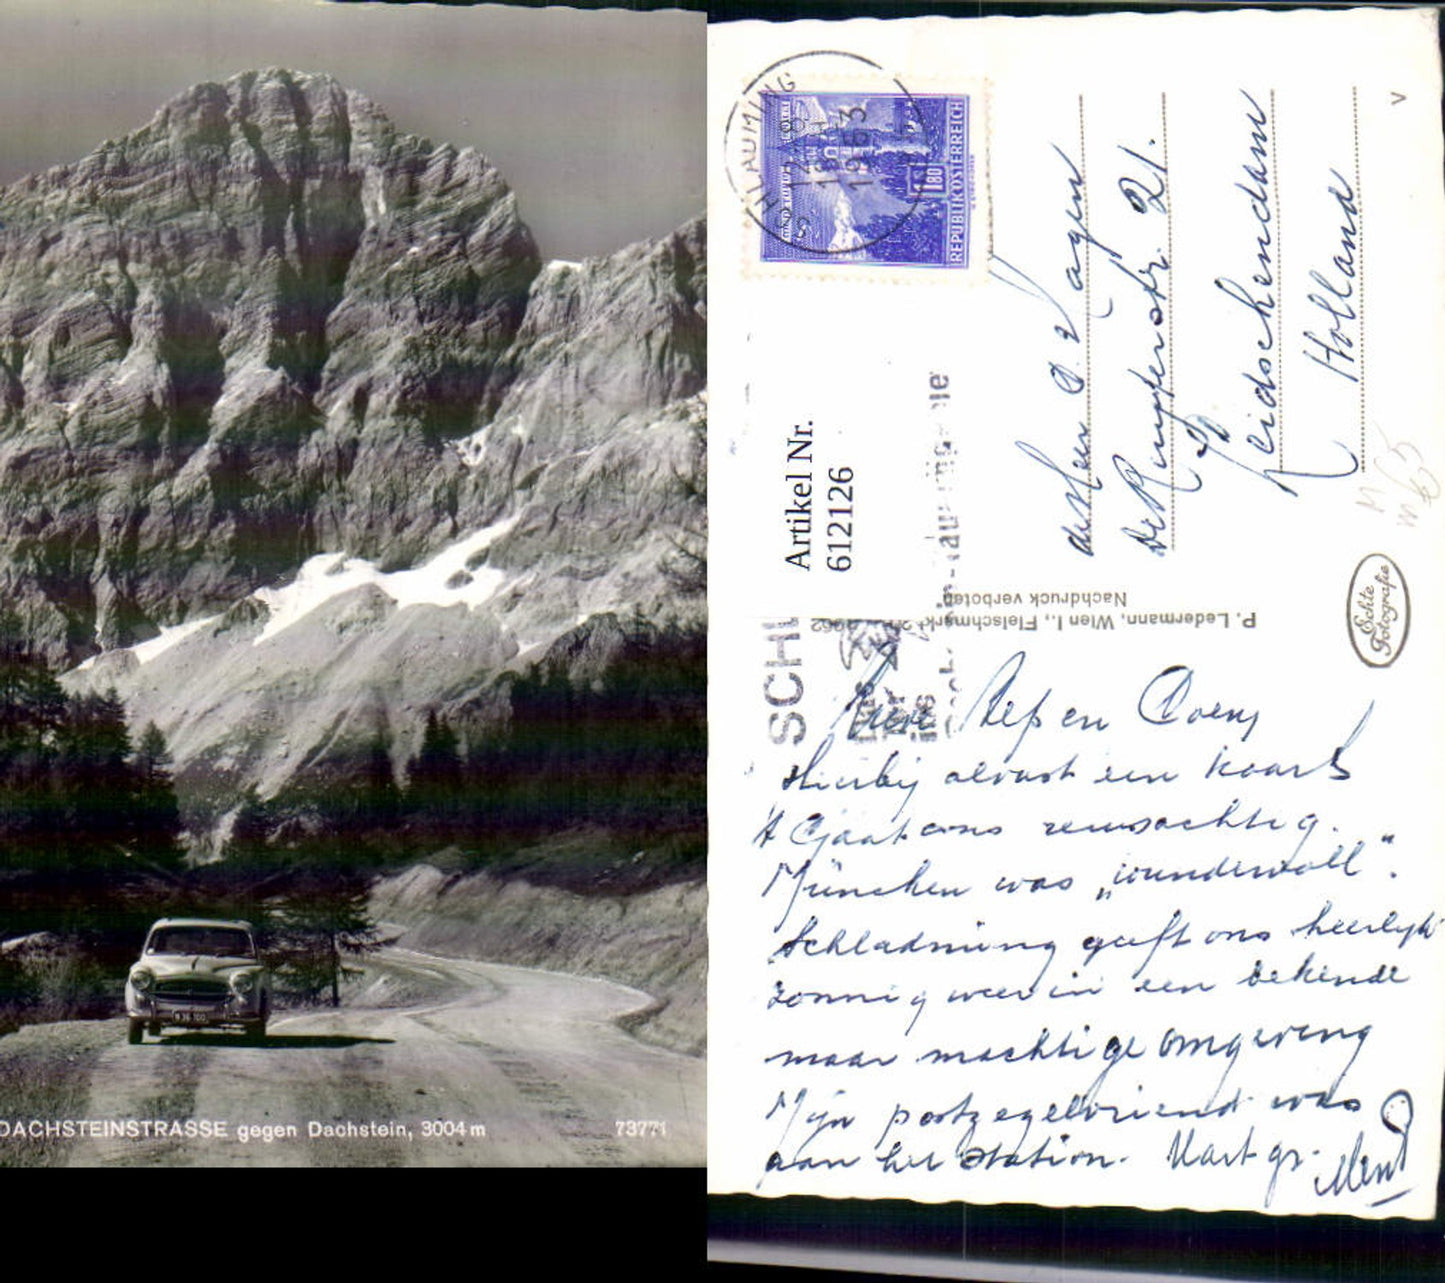 DACHSTEINSTRASSE gegen Dachstein, 3004 m
73771
SCHLADMING
1963
1.80
REPUBLIK ÖSTERREICH
Artikel Nr.
612126
SCH
de Heer
21.
Leidschendam
Holland
V
Echte
Fotografie
P. Ledermann, Wien I., Fleischmarkt
Nachdruck verboten
1962
Lieve Bep en Coen,
Hierbij alvast een kaart
't Gaat ons reusachtig.
München was „wundervoll".
Schladming geeft ons heerlijk
zonnig weer in een bekende
maar machtige omgeving
Mijn postzegelvriend was
aan het station. Hart gr.